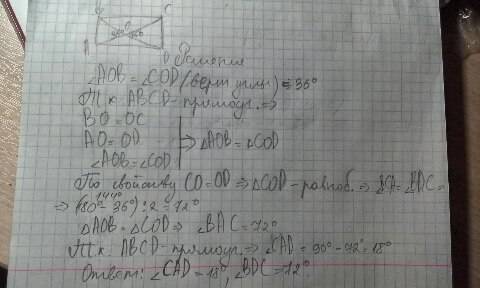 B C
A D
36° 36°
Решение
∠AOB = ∠COD (верт углы) = 36°
Т.к ABCD - прямоуг. ⇒
BO = OC
AO = OD ⇒ △AOB = △COD
∠AOB = ∠COD
По свойству CO = OD ⇒ △COD - равноб. ⇒ ∠BDC =
144°
⇒ (180° - 36°) : 2 = 72°
△AOB = △COD ⇒ ∠BAC = 72°
Т.к. ABCD - прямоуг. ⇒ ∠CAD = 90° - 72° = 18°
Ответ: ∠CAD = 18°, ∠BDC = 72°